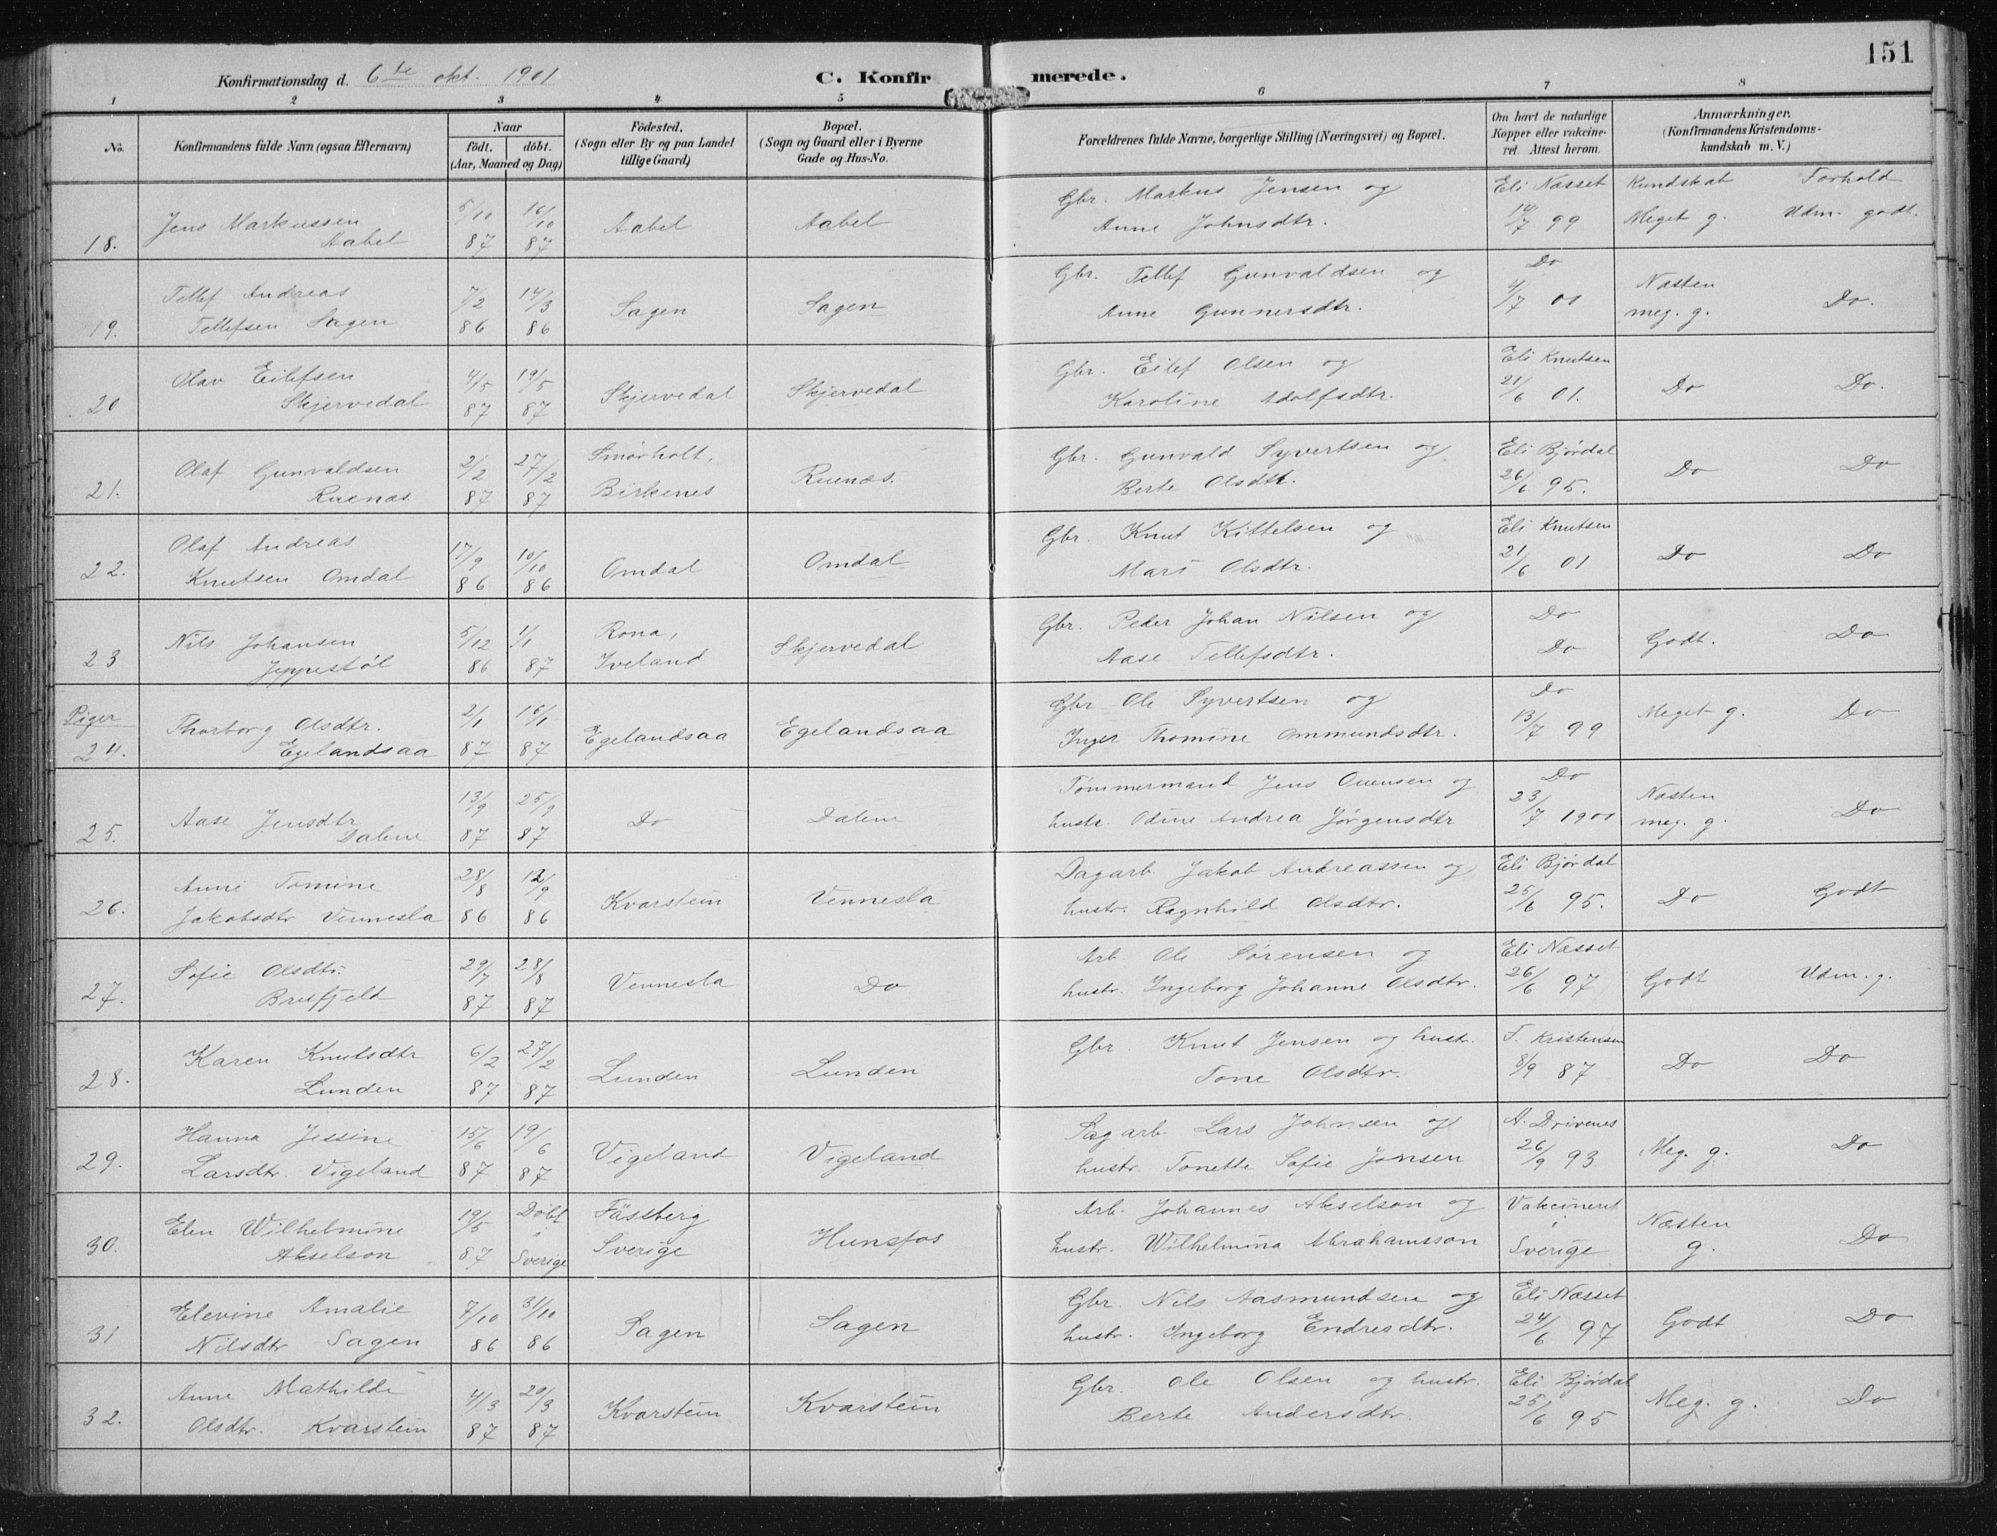 151
Konfirmationsdag d. 6te okt. 1901
C. Konfirmerede.
1 2 3 4 5 6 7 8
No.
Konfirmandens fulde Navn (ogsaa Efternavn)
Naar
födt. döbt.
(Aar, Maaned og Dag)
Födested.
(Sogn eller By og paa Landet
tillige Gaard)
Bopæl.
(Sogn og Gaard eller i Byerne
Gade og Hus-No.
Forældrenes fulde Navne, borgerlige Stilling (Næringsvei) og Bopæl.
Om havt de naturlige
Kopper eller vakcine-
ret. Attest herom.
Anmærkninger.
(Konfirmandens Kristendoms-
kundskab m. V.)
Kundskab Forhold
18. Jens Markussen Aabel 5/10 87 16/10 87 Aabel Aabel Gbr. Markus Jensen og Anne Johnsdtr. Eli Næsset 14/7 99 Meget g. Udm. godt.
19. Tellef Andreas Tellefsen Sagen 7/2 86 14/3 86 Sagen Sagen Gbr. Tellef Gunvaldsen og Anne Gunnersdtr. Do 4/7 01 Næsten meg. g. Do.
20 Olav Eilefsen Skjervedal 4/5 87 19/5 87 Skjervedal Skjervedal Gbr. Eilef Olsen og Karoline Adolfsdtr. Eli Knutsen 21/6 01. Do Do.
21. Olaf Gunvaldsen Ruenæs. 2/2 87 27/2 87 Smørholt, Birkenes Ruenæs. Gbr. Gunvald Syvertsen og Berte Olsdtr. Eli Bjørdal 26/6 95. Do Do
22. Olaf Andreas Knutsen Omdal 17/9 86 10/10 86 Omdal Omdal Gbr. Knut Kittelsen og Mari Olsdtr. Eli Knutsen 21/6 01 Do Do
23 Nils Johansen Jeppestøl 5/12 86 1/1 87 Rona, Iveland Skjervedal Gbr. Peder Johan Nilsen og Aase Tellefsdtr. Do Do Godt. Do
Piger
24. Thorborg Olsdtr. Egelandsaa 2/1 87 16/1 87 Egelandsaa Egelandsaa Gbr Ole Syvertsen og Inger Thomine Ommundsdtr. Do 13/7 99 Meget g. Do
25. Aase Jensdtr Dalene 13/9 87 25/9 87 Do Dalene Tømmermand Jens Ouensen og hustr. Odine Andrea Jørgensdtr Do 23/7 1900 Næsten meg. g. Do
26. Anne Tomine Jakobsdtr Vennesla 28/8 86 12/9 86 Kvarstein Vennesla Dagarb. Jakob Andreassen og hustr. Ragnhild Olsdtr. Eli Bjørdal 25/6 95. Do Godt
27. Sofie Olsdtr. Breifjeld 29/7 87 28/8 87 Vennesla Do Arb. Ole Sørensen og hustr. Ingeborg Johanne Olsdtr. Eli Næsset 26/6 97 Godt Udm. g.
28. Karen Knutsdtr Lunden 6/2 87 27/2 87 Lunden Lunden Gbr Knut Jensen og hustr. Tone Olsdtr. T. Kristensen 8/9 87 Do Do
29. Hanna Jessine Larsdtr. Vigeland 15/6 87 19/6 87 Vigeland Vigeland Sagarb. Lars Johnsen og hustr. Tonette Sofie Jonsen A. Drivenes 26/9 93 Meg. g. Do
30. Elen Wilhelmine Akselson 19/5 87 Döbt i Sverige Fässberg Sverige Hunsfos Arb. Johannes Akselson og hustr. Wilhelmina Abrahamsson Vakcineret i Sverige Næsten g. Do
31 Elevine Amalie Nilsdtr Sagen 7/10 86 31/10 86 Sagen Sagen Gbr. Nils Aasmundsen og hustr. Ingeborg Endresdtr. Eli Næsset 24/6 97 Godt Do
32. Anne Mathilde Olsdtr. Kvarstein 4/3 87 20/3 87 Kvarstein Kvarstein Gbr. Ole Olsen og hustr. Berte Andersdtr. Eli Bjørdal 25/6 95 Meg. g. Do